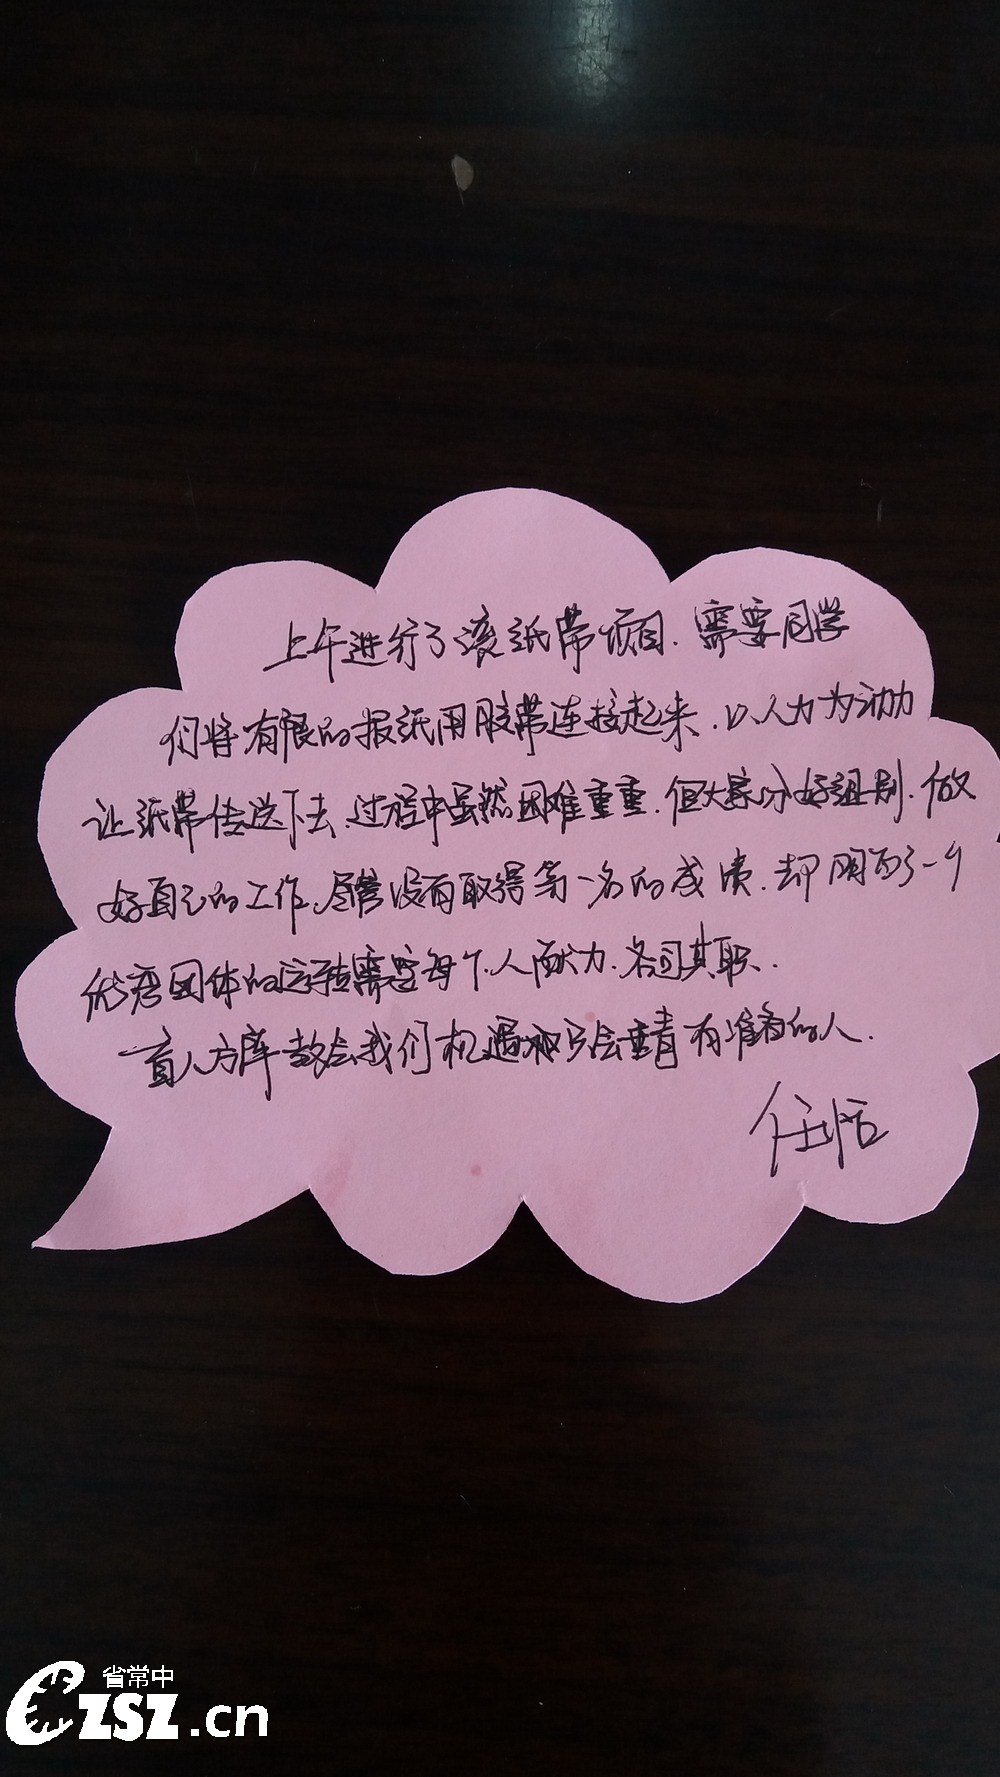 上午进行了滚纸带项目.需要同学
们将有限的报纸用胶带连接起来.以人力为动力
让纸带传送下去.过程中虽然困难重重.但大家分好组别.做
好自己的工作.尽管没有取得第一名的成绩.却明白了一个
优秀团体的运转需要每个人献力.各司其职.
盲人方阵教会我们机遇永只会垂青有准备的人.
任恬
省常中
CZSZ.cn